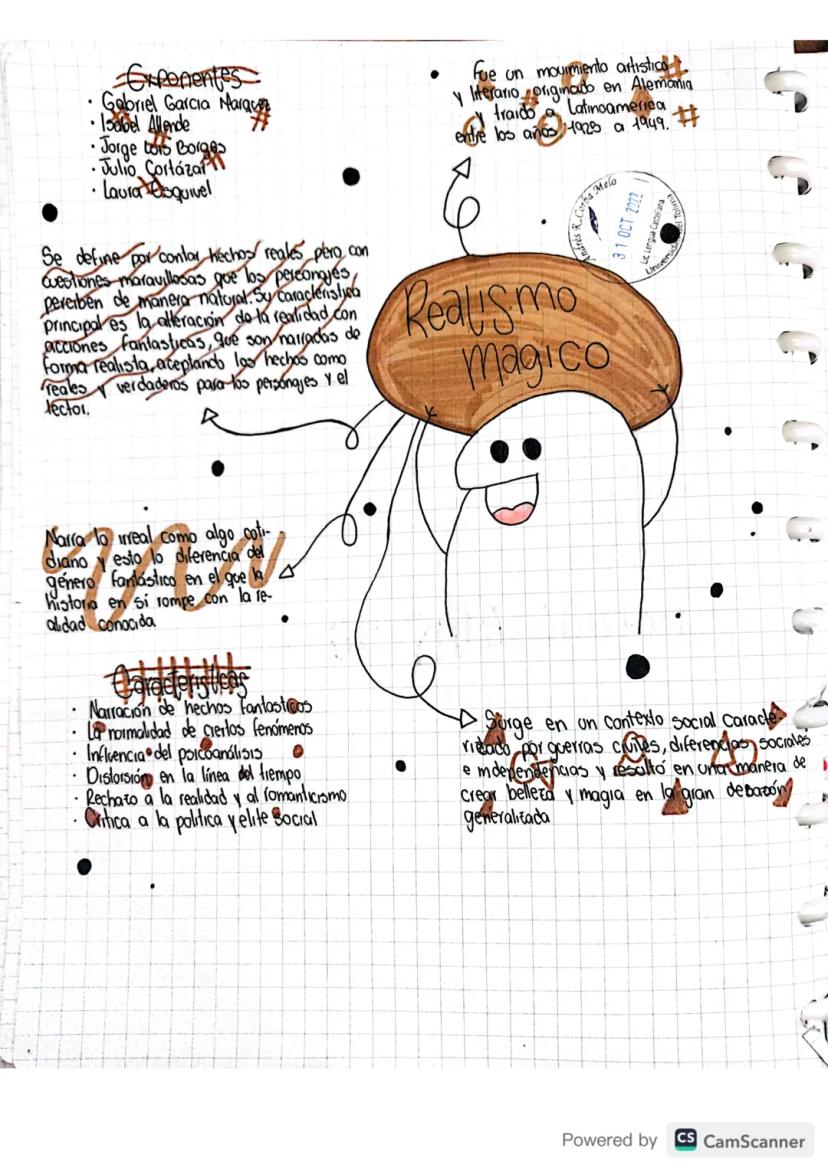 Exponentes
· Gabriel Garcia Marquez
· Isabel Allende
· Jorge Luis Borges
· Julio Cortázar
· Laura Esquivel
Fue un movimiento artistico
y literario originado en Alemania
y traido a Latinoamerica
entre los años 1928 a 1949.
Andrés R. Corba Melo
31 OCT 2022
Lic Lengua Castellana
Realismo
magico
Se define por contar hechos reales pero con
cuestiones maravillosas que los personajes
perciben de manera natural. Su característica
principal es la alteración de la realidad con
acciones fantasticas, que son narradas de
forma realista, aceptando los hechos como
reales y verdaderos para los personajes y el
lector.
Narra lo irreal como algo coti-
diano y esto lo diferencia del
género fantástico en el que la
historia en sí rompe con la re-
alidad conocida
Caracteristicas
· Narración de hechos fantasticos
· La normalidad de ciertos fenómenos
· Influencia del psicoanálisis
· Distorsión en la línea del tiempo
· Rechazo a la realidad y al romanticismo
· Critica a la politica y elite social
Surge en un contexto social caracte-
rizado por guerras civiles, diferencias sociales
e independencias y resultó en una manera de
crear belleza y magia en la gran desazón
generalizada
Powered by CS CamScanner